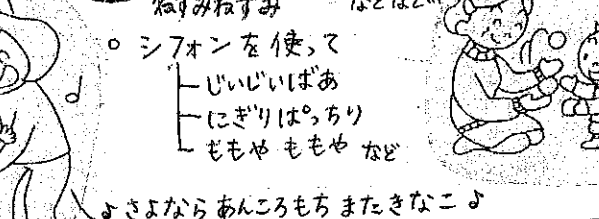 ねずみねずみ などなど
○ シフォンを使って
じいじいばあ
にぎりぱっちり
ももや ももや など
♪さよなら あんころもち またきなこ♪